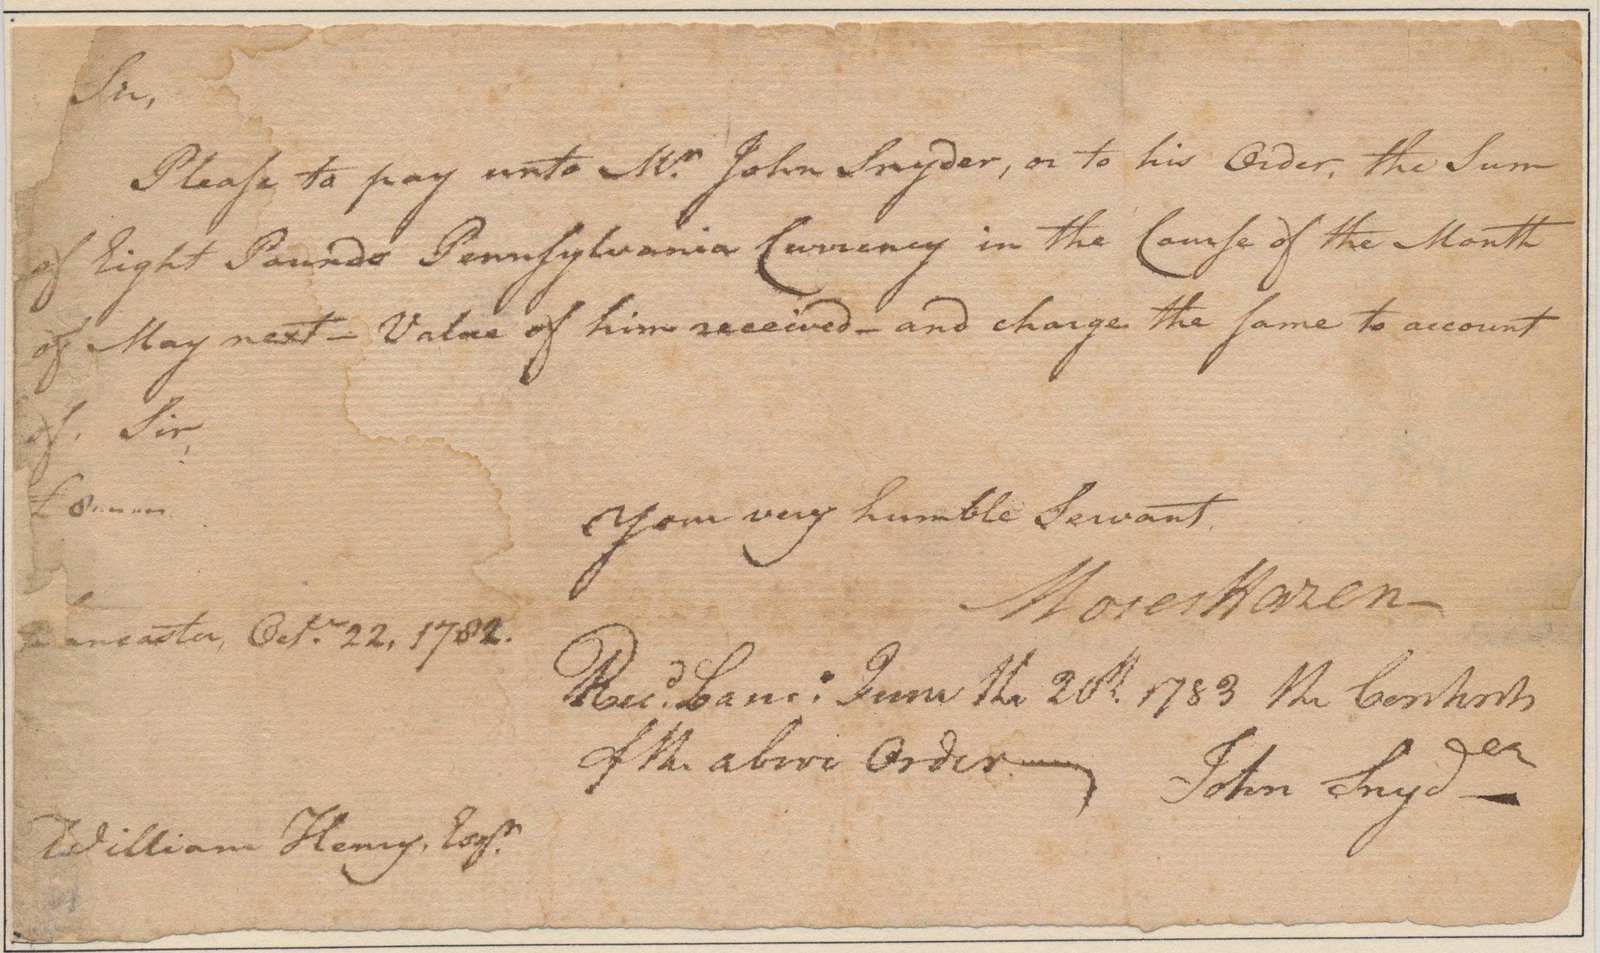 Sir,
Please to pay unto Mr. John Snyder, or to his Order, the Sum
of Eight Pounds Pennsylvania Currency in the Course of the Month
of May next – Value of him received – and charge the same to account
of. Sir,
£8......
Your very humble Servant.
Moses Hazen
Lancaster, Octr. 22, 1782.
Recd. Lanc: June the 20th. 1783 the Contents
of the above Order
John Snyder
William Henry, Esqr.